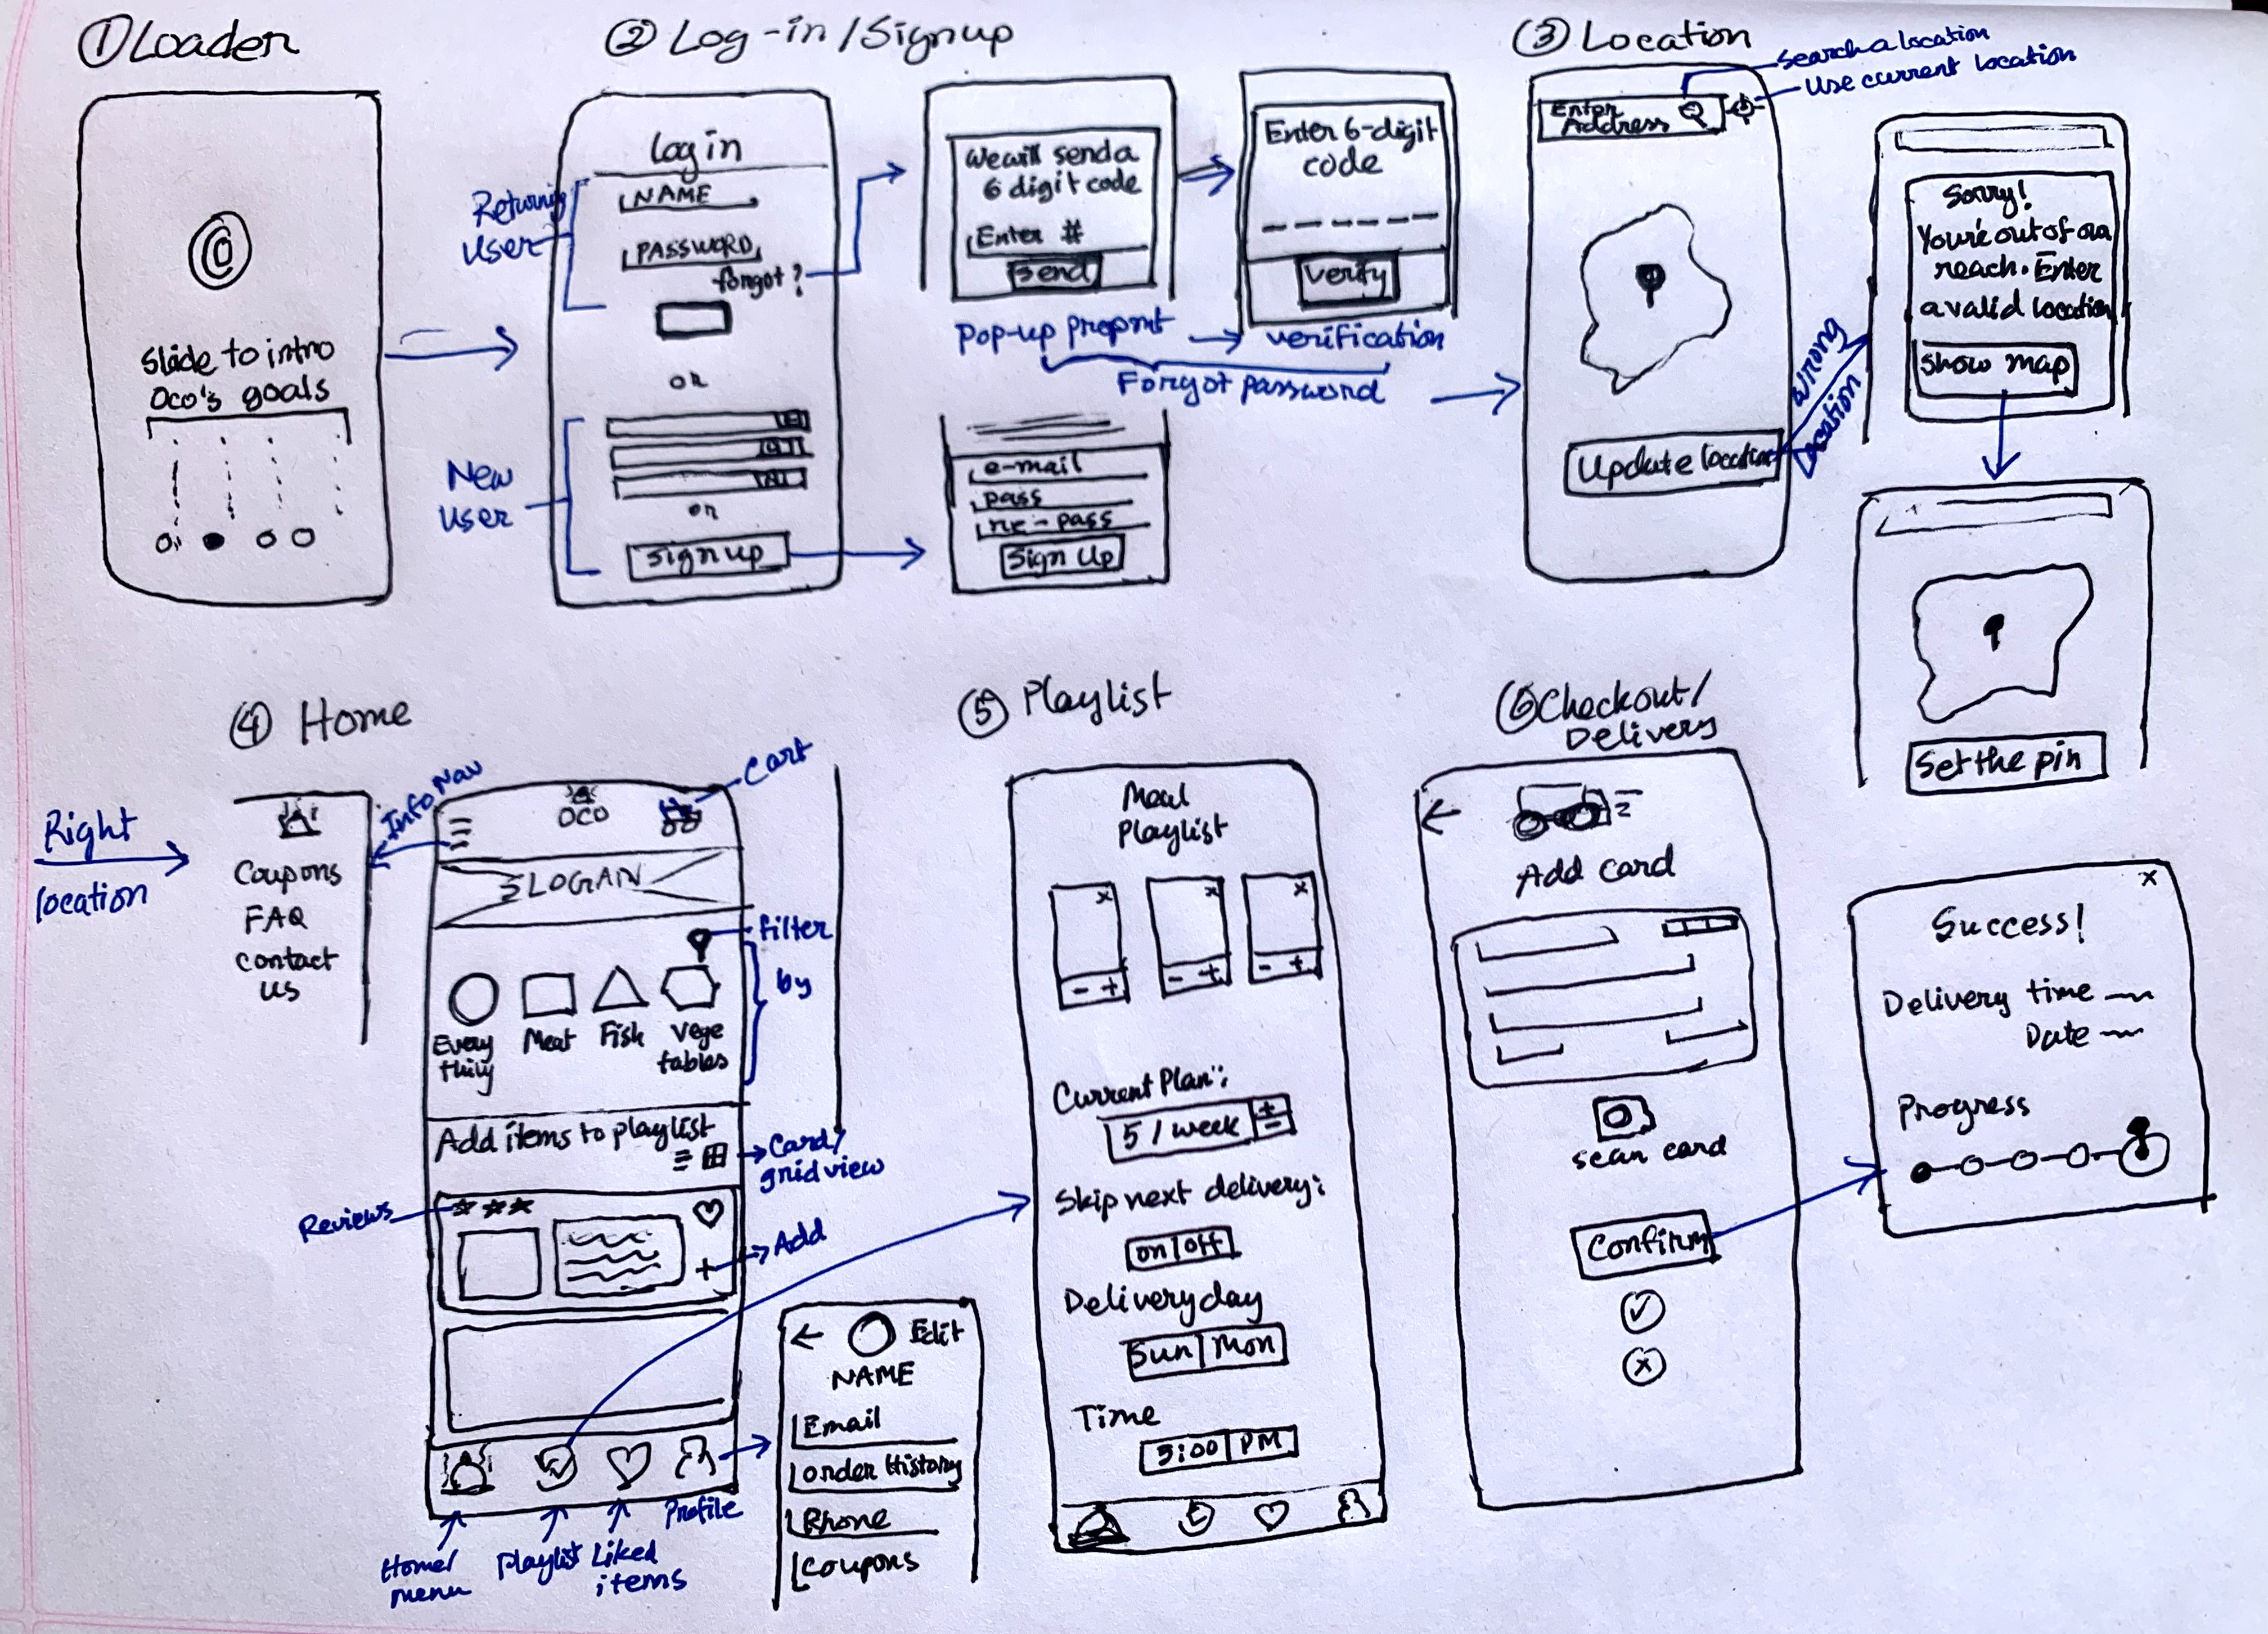 ① Loader
Slide to intro
Oco's goals
② Log-in/Signup
Returning
User
log in
NAME
PASSWORD
forgot?
or
New
User
or
Sign up
We will send a
6 digit code
Enter #
Send
Enter 6-digit
code
verify
Pop-up propmt
verification
Forgot password
e-mail
pass
re-pass
Sign Up
③ Location
Search a location
Use current location
Enter
Address
Update location
Wrong
Location
Sorry!
You're out of our
reach. Enter
a valid location
Show map
Set the pin
④ Home
Right
location
Info Nav
Coupons
FAQ
contact
us
OCO
Cart
SLOGAN
filter
by
Every
thing
Meat
Fish
Vege
tables
Add items to playlist
Card/
grid view
Reviews
Add
Home/
menu
Playlist
Liked
items
Profile
Edit
NAME
Email
Order History
Phone
Coupons
⑤ Playlist
Meal
Playlist
- +
- +
- +
Current Plan:
5 / week + -
Skip next delivery:
on|off
Delivery day
Sun|Mon
Time
PM
⑥ Checkout/
Delivery
Add card
scan card
Confirm
x
Success!
Delivery time
Date
Progress